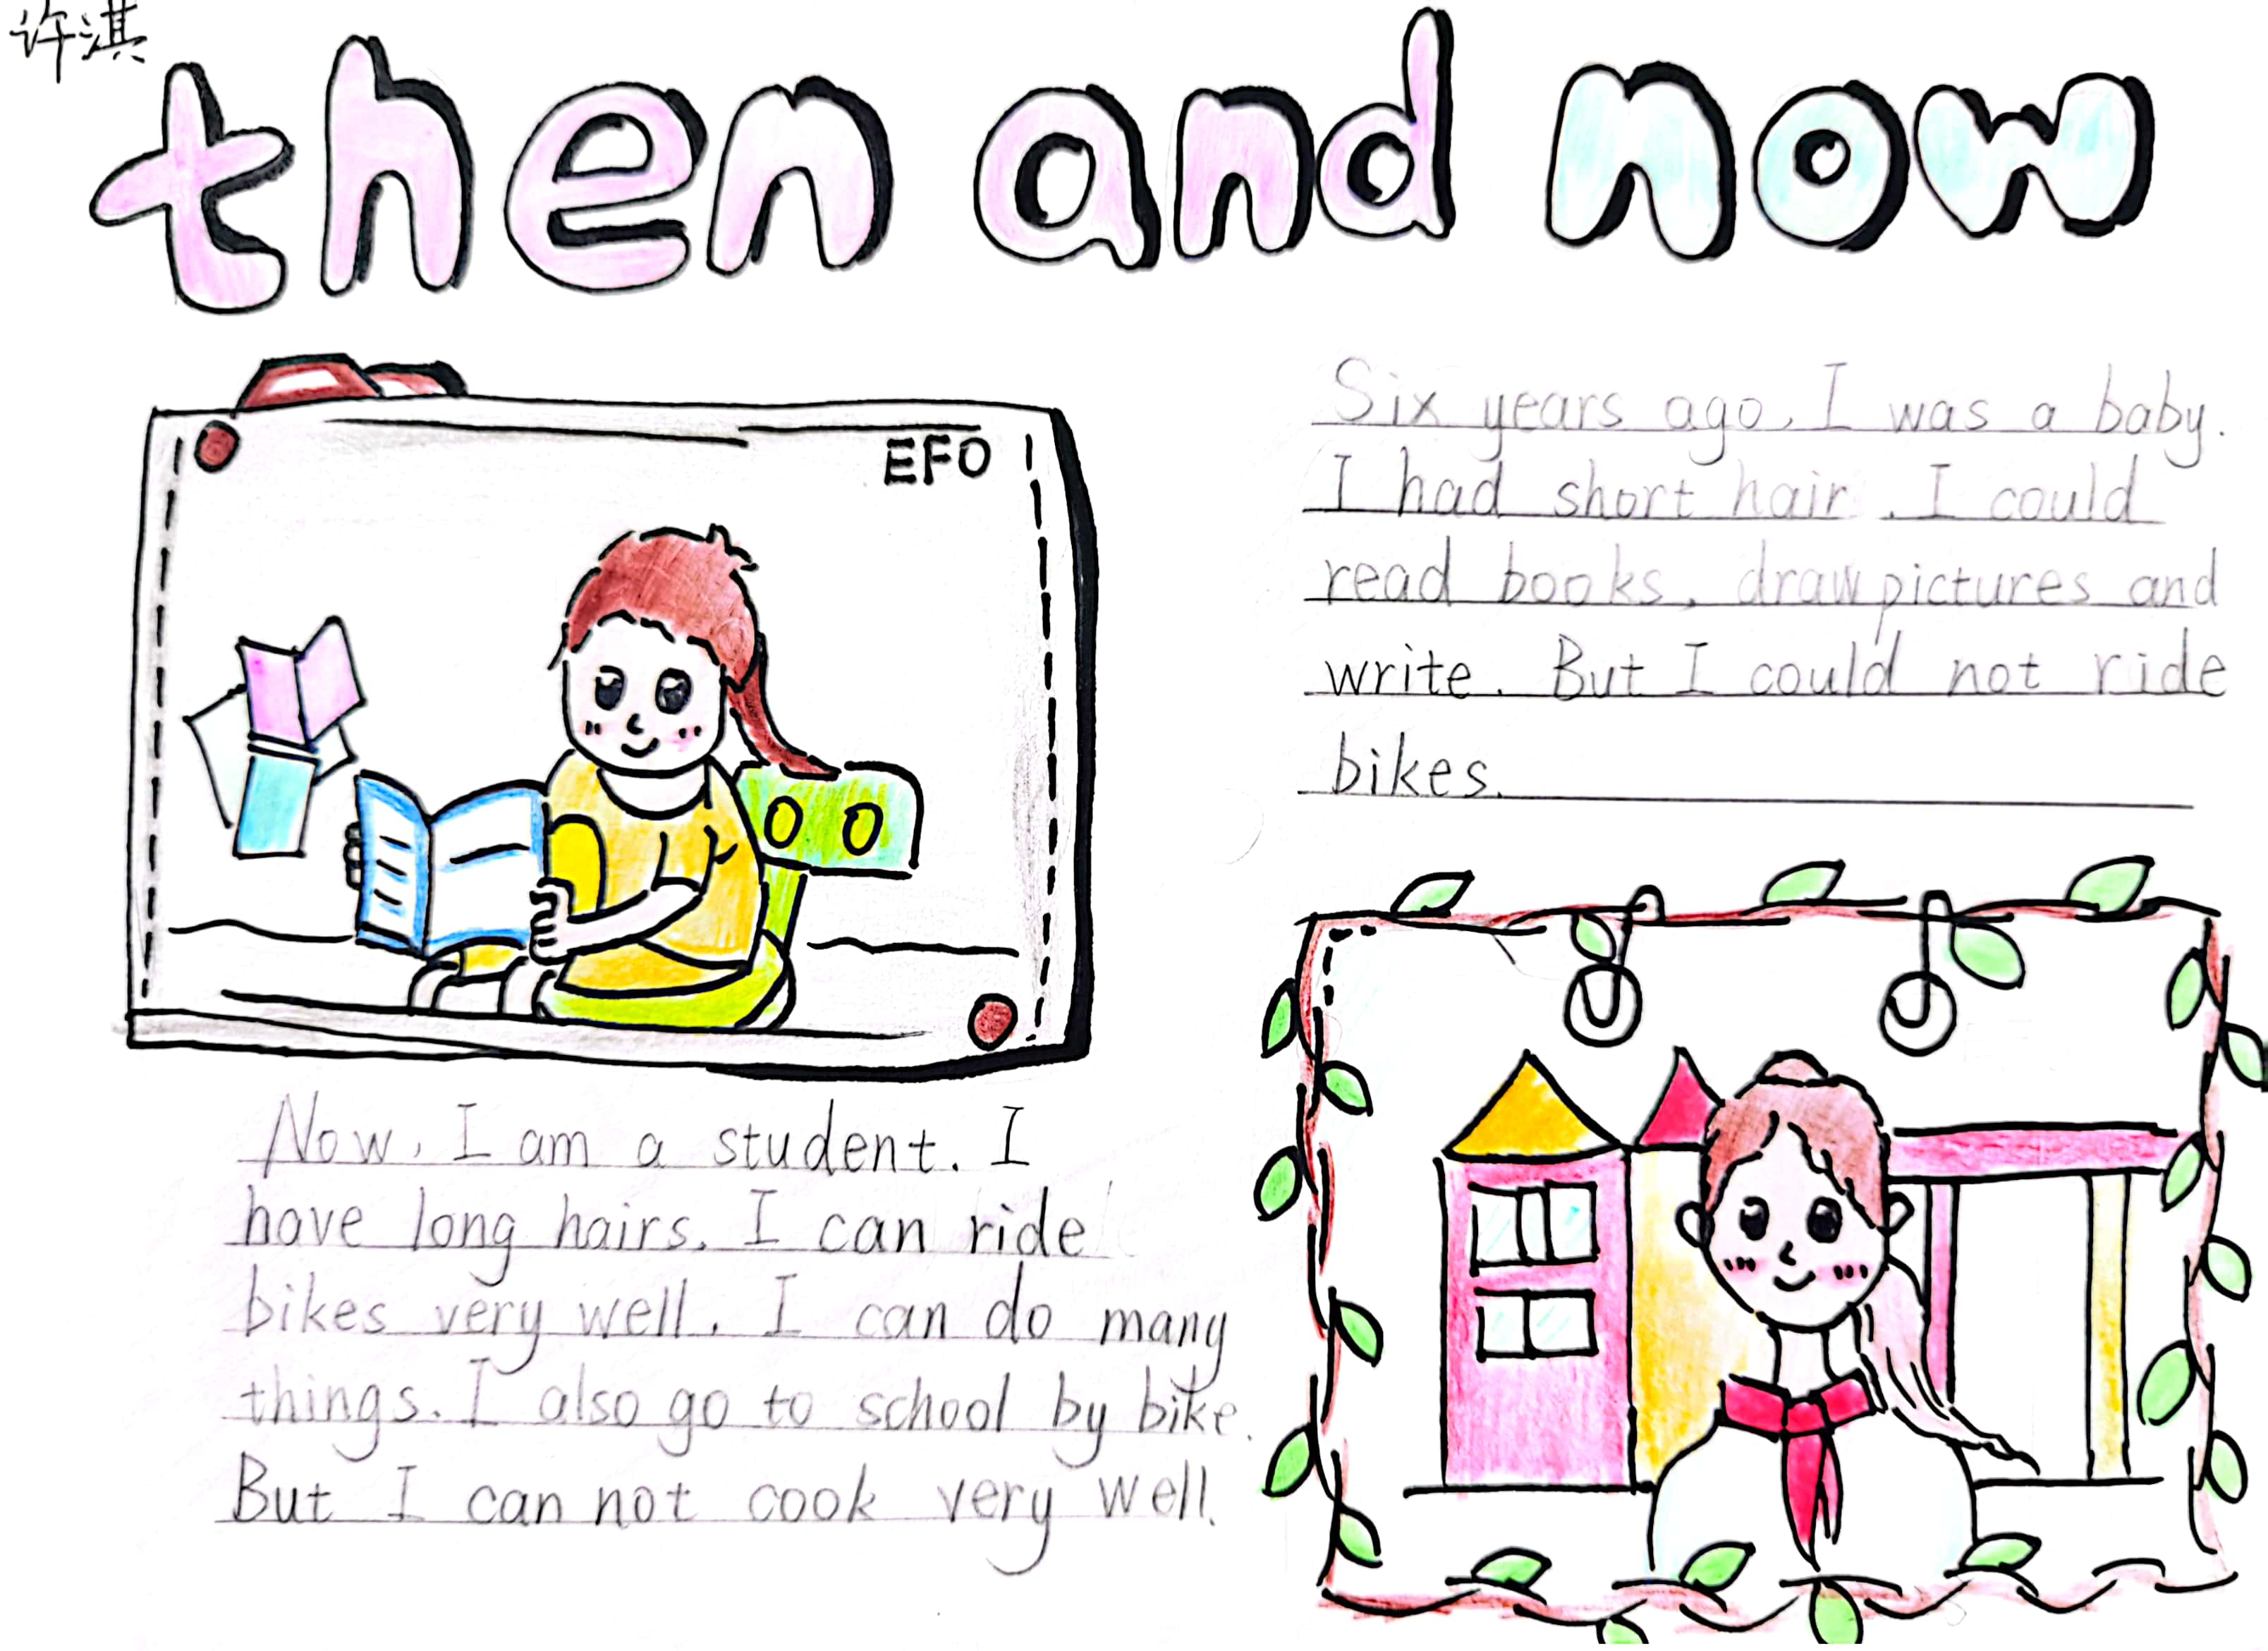 许淇
then and now
EFO
Six years ago, I was a baby.
I had short hair. I could
read books, draw pictures and
write. But I could not ride
bikes.
Now, I am a student. I
have long hairs. I can ride
bikes very well. I can do many
things. I also go to school by bike.
But I can not cook very well.